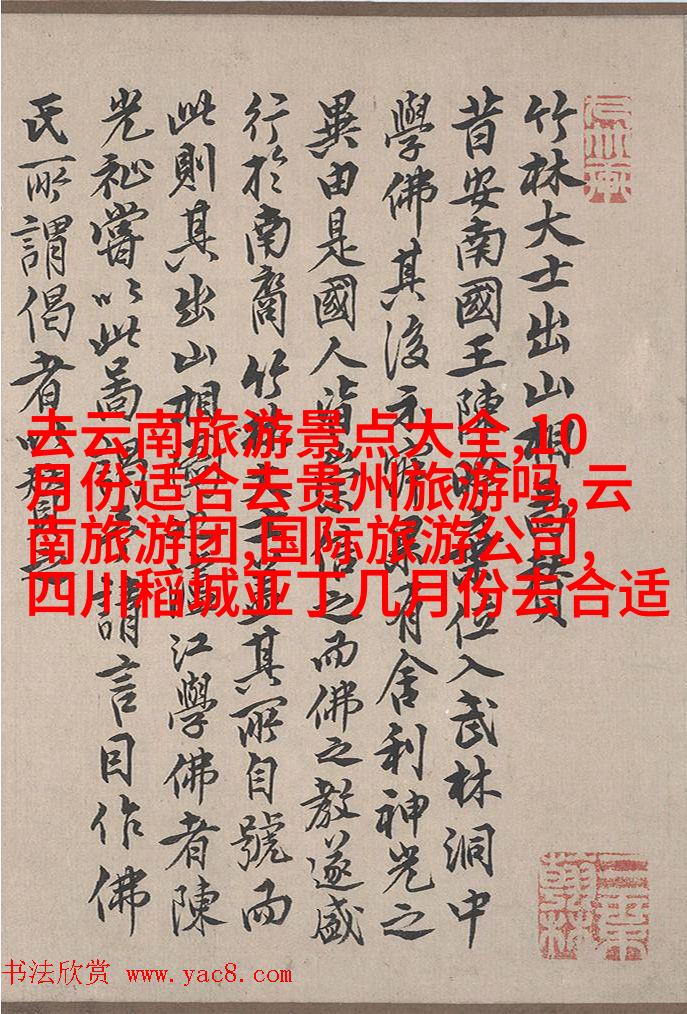 竹林大士出山相贊
昔安南國王陳位入武林洞中
學佛其後示果有舍利神光之
異由是國人皆信之而佛之教遂盛
行於南裔竹林大士蓋其所自號而
此則其出山相江學佛者陳
光祉嘗以此啚請言因作佛
氏所謂偈者以
去云南旅游景点大全,10
月份适合去贵州旅游吗,云
南旅游团,国际旅游公司,
四川稻城亚丁几月份去合适
书法欣赏 www.yac8.com